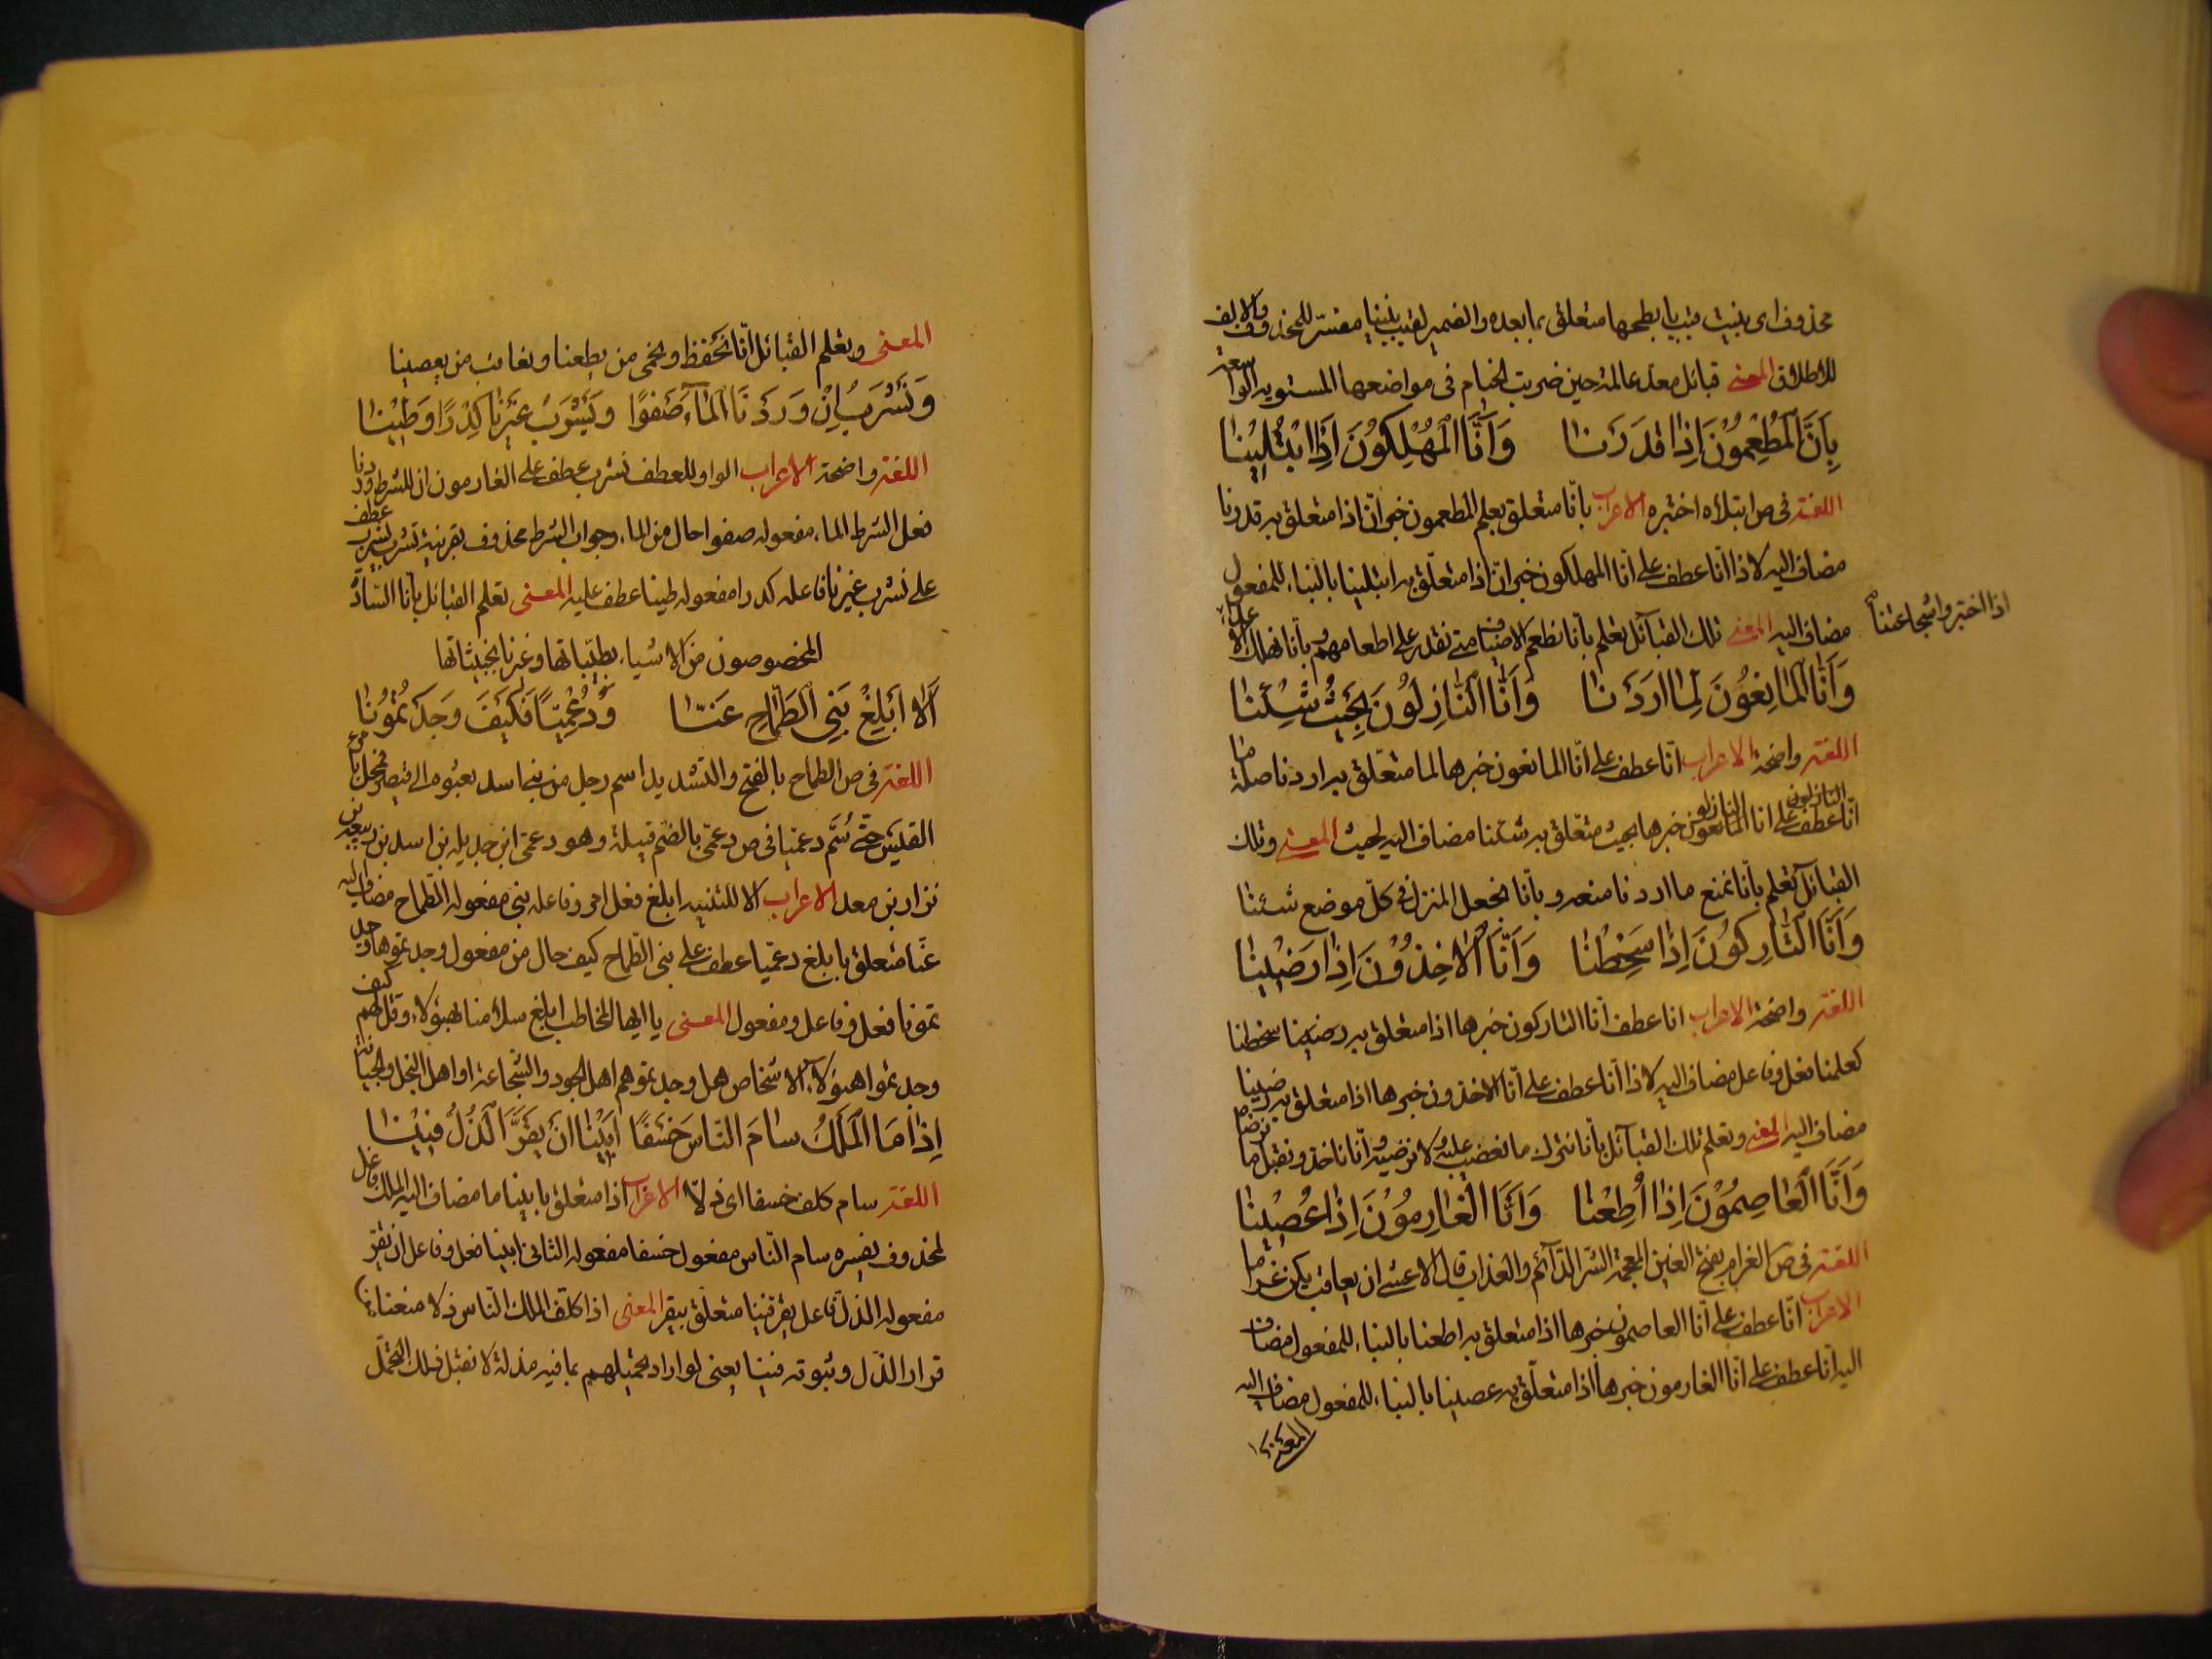 محذوف اى بنيت قببا بابطحها متعلق بما بعده والضمير لقبب بنينا مفسّر للمحذوف والالف
للاطلاق المعنى قبائل معدّ عالمة حين ضربت الخيام فى مواضعها المستوية الواسعة
بِاَنَّا الْمُطْعِمُوْنَ اِذَا قَدَرْنَا وَاَنَّا الْمُهْلِكُوْنَ اِذَا ابْتُلِيْنَا
اللغة فى ص ابتلاه اختبره الاعراب بانّا متعلق بعلم المطعمون خبر انّ اذا متعلق به قدرنا
مضاف اليه لاذا انّا عطف على انّا المهلكون خبر انّ اذا متعلّق به ابتلينا بالبناء للمفعول
مضاف اليه المعنى تلك القبائل تعلم بانّا نطعم الاضياف متى نقدر على اطعامهم وبانّا نهلك الاعداء
اذا اختبروا شجاعتنا
وَاَنَّا الْمَانِعُوْنَ لِمَا اَرَدْنَا وَاَنَّا النَّازِلُوْنَ بِحَيْثُ شِئْنَا
اللغة واضحة الاعراب انّا عطف على انّا المانعون خبرها لما متعلّق به اردنا صلة ما
انّا عطف على انا المانعون النازلون خبرها بحيث متعلّق به شئنا مضاف اليه لحيث المعنى وتلك
القبائل تعلم بانّا نمنع ما اردنا منعه وبانّا نجعل المنزل فى كلّ موضع شئنا
وَاَنَّا التَّارِكُوْنَ اِذَا سَخِطْنَا وَاَنَّا الْاٰخِذُوْنَ اِذَا رَضِيْنَا
اللغة واضحة الاعراب انا عطف انّا التاركون خبرها اذا متعلق به رضينا سخطنا
كعلمنا فعل وفاعل مضاف اليه لاذا انّا عطف على انّا الاخذون خبرها اذا متعلق به رضينا
مضاف اليه المعنى وتعلم تلك القبائل بانّا نترك ما نغضب عليه ولا نرضيه وانّا ناخذ ونقبل ما نرضا
وَاَنَّا الْعَاصِمُوْنَ اِذَا اُطِعْنَا وَاَنَّا الْغَارِمُوْنَ اِذَا عُصِيْنَا
اللغة فى ص الغرام بفتح الغين المعجمة الشّر الدّائم والعذاب قال الاعشى ان يعاقب يكن غراما
الاعراب انّا عطف على انّا العاصمون خبرها اذا متعلق به اطعنا بالبناء للمفعول مضاف
اليه انّا عطف على انّا الغارمون خبرها اذا متعلّق به عصينا بالبناء للمفعول مضاف اليه
المعنى
المعنى وتعلم القبائل انّا نحفظ ونحمى من يطعنا ونعاقب من يعصينا
وَنَشْرَبُ اِنْ وَرَدْنَا الْمَاءَ صَفْوًا وَيَشْرَبُ غَيْرُنَا كَدِرًا وَطِيْنَا
اللغة واضحة الاعراب الواو للعطف نشرب عطف على الغارمون ان للشرط وردنا
فعل الشرط الماء مفعوله صفوا حال من الماء وجواب الشرط محذوف بقرينة نشرب يشرب عطف
على نشرب غيرنا فاعله كدرا مفعوله طينا عطف عليه المعنى تعلم القبائل بانّا السّادة
المخصوصون من الاشياء بطيّباتها وغيرنا بخبيثاتها
اَلَا اَبْلِغْ بَنِى الطَّمَّاحِ عَنَّا وَدُعْمِيًّا فَكَيْفَ وَجَدْتُمُوْنَا
اللغة فى ص الطماح بالفتح والتشديد اسم رجل من بنى اسد بعثوه الى قيصر فمحل بامرء
القيس حتى سُمَّ دعميّا فى ص دعمىّ بالضم قبيلة وهو دعمى ابن جديله بن اسد بن ربيعه بن
نزار بن معد الاعراب الا للتنبيه ابلغ فعل امر وفاعله بنى مفعوله الطّماح مضاف اليه
عنّا متعلق بابلغ دعميّا عطف على بنى الطّماح كيف حال من مفعول وجدتموها وجد
تمونا فعل وفاعل ومفعول المعنى يا ايها المخاطب ابلغ سلامنا لهؤلاء وقل لهم كيف
وجدتموا هؤلاء الاشخاص هل وجدتموهم اهل الجود والشّجاعة او اهل البخل والجبانة
اِذَا مَا الْمَلْكُ سَامَ النَّاسَ خَسْفًا اَبَيْنَا اَنْ يَقَرَّ الذُّلُّ فِيْنَا
اللغة سام كلف خسفا اى ذلّا الاعراب اذا متعلق بابينا ما مضاف اليه الملك فاعل
لمحذوف يفسره سام النّاس مفعول خسفا مفعوله الثانى ابينا فعل وفاعل ان يقرّ
مفعوله الذلّ فاعل يقرّ فينا متعلّق بيقر المعنى اذا كلّف الملك النّاس ذلا منعنا من
قرار الذّل وثبوته فينا يعنى لو اراد تحميلهم بما فيه مذلة لا نقبل ذلك التحمّل